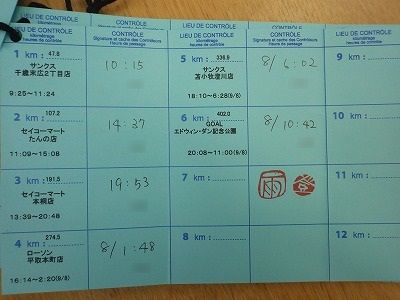 LIEU DE CONTRÔLE
CONTRÔLE
LIEU DE CONTRÔLE
CONTRÔLE
LIEU DE CONTRÔLE
kilométrage
heures de contrôle
CONTRÔLE
Signature et cachet des Contrôleurs
Heure de passage
LIEU DE CONTRÔLE
kilométrage
heures de contrôle
CONTRÔLE
Signature et cachet des Contrôleurs
Heure de passage
LIEU DE CONTRÔLE
kilométrage
heures de contrôle
1 km : 47.8
サンクス
千歳末広2丁目店
9:25~11:24
10:15
2 km : 107.2
セイコーマート
たんの店
11:09~15:08
14:37
3 km : 191.5
セイコーマート
本桐店
13:39~20:48
19:53
4 km : 274.5
ローソン
平取本町店
16:14~2:20(9/8)
8/1:48
5 km : 336.9
サンクス
苫小牧澄川店
18:10~6:28(9/8)
8/6:02
6 km : 402.0
GOAL
エドウィン・ダン記念公園
20:08~11:00(9/8)
8/10:42
7 km :
8 km :
9 km :
10 km :
11 km :
12 km :